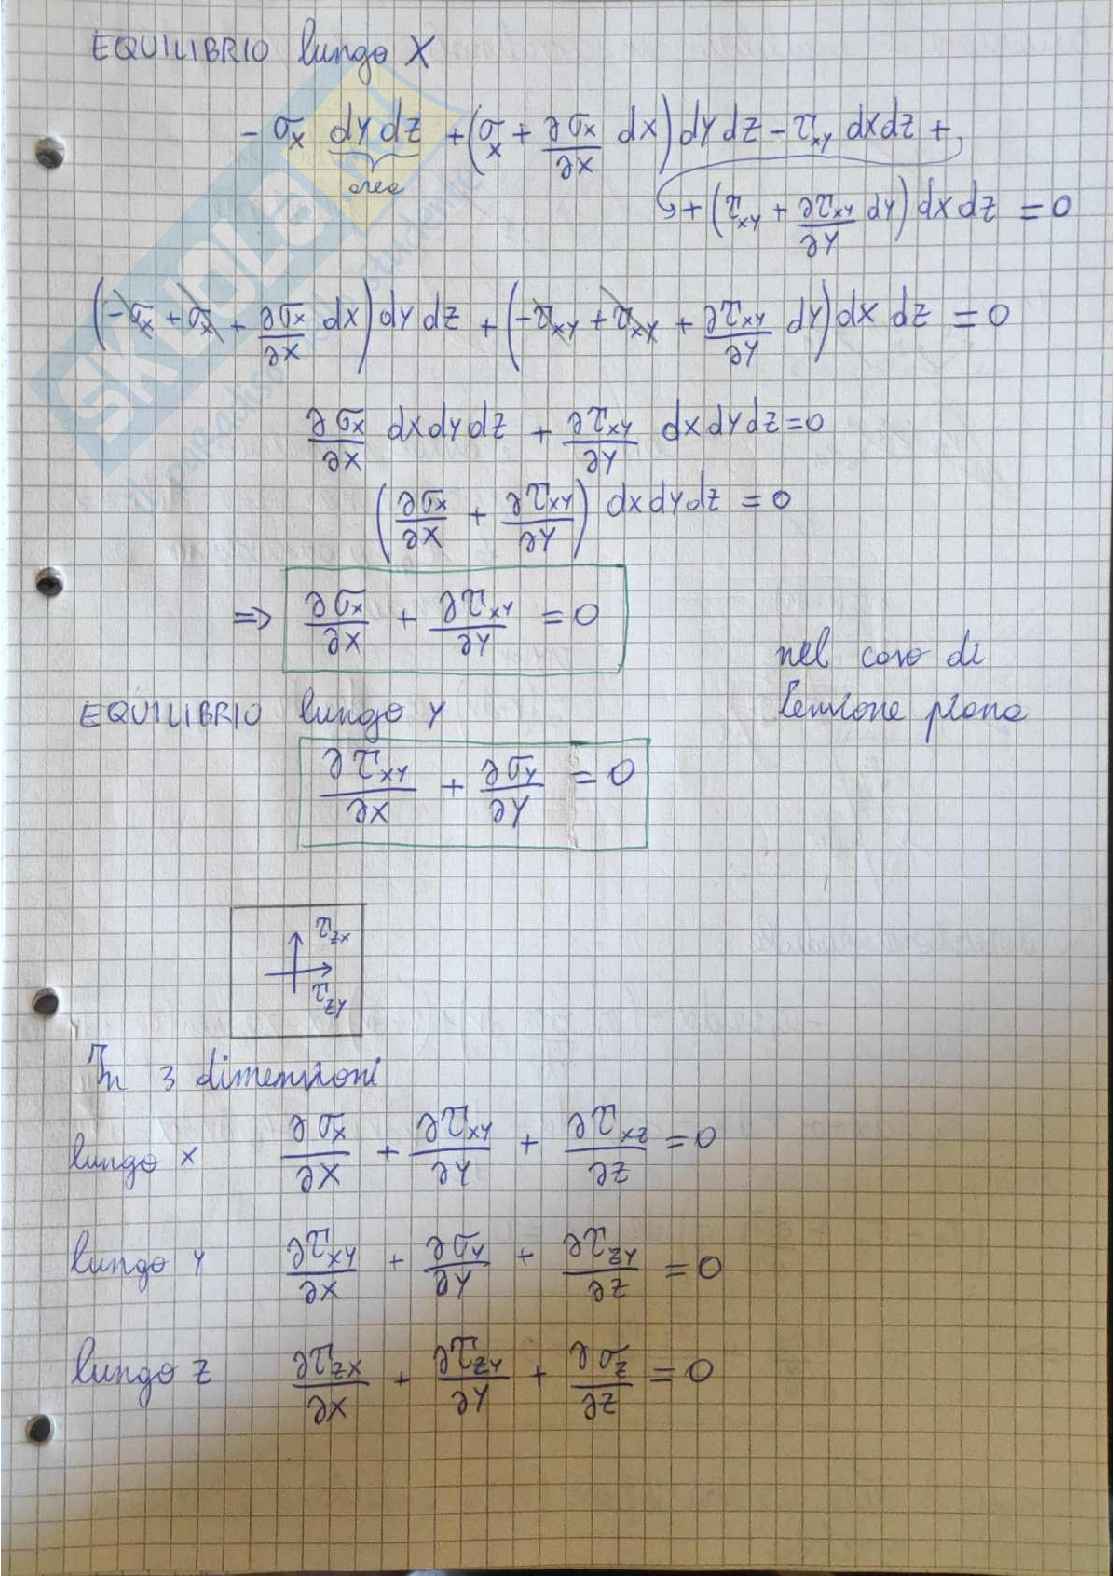 EQUILIBRIO lungo X
- σx dy dz + (σx + ∂σx/∂x dx) dy dz - τxy dx dz +
area
+ (τxy + ∂τxy/∂y dy) dx dz = 0
(-σx + σx + ∂σx/∂x dx) dy dz + (-τxy + τxy + ∂τxy/∂y dy) dx dz = 0
∂σx/∂x dx dy dz + ∂τxy/∂y dx dy dz = 0
(∂σx/∂x + ∂τxy/∂y) dx dy dz = 0
⇒ ∂σx/∂x + ∂τxy/∂y = 0
nel caso di
tensione piana
EQUILIBRIO lungo y
∂τxy/∂x + ∂σy/∂y = 0
τzx
τzy
In 3 dimensioni
lungo x ∂σx/∂x + ∂τxy/∂y + ∂τxz/∂z = 0
lungo y ∂τxy/∂x + ∂σy/∂y + ∂τzy/∂z = 0
lungo z ∂τzx/∂x + ∂τzy/∂y + ∂σz/∂z = 0
SKUOLA